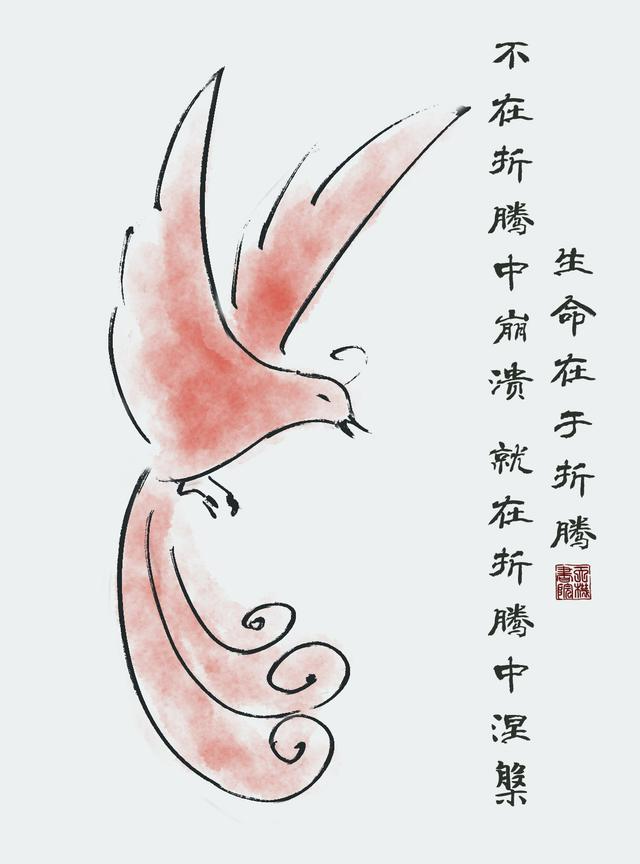 生命在于折腾
不在折腾中崩溃 就在折腾中涅槃